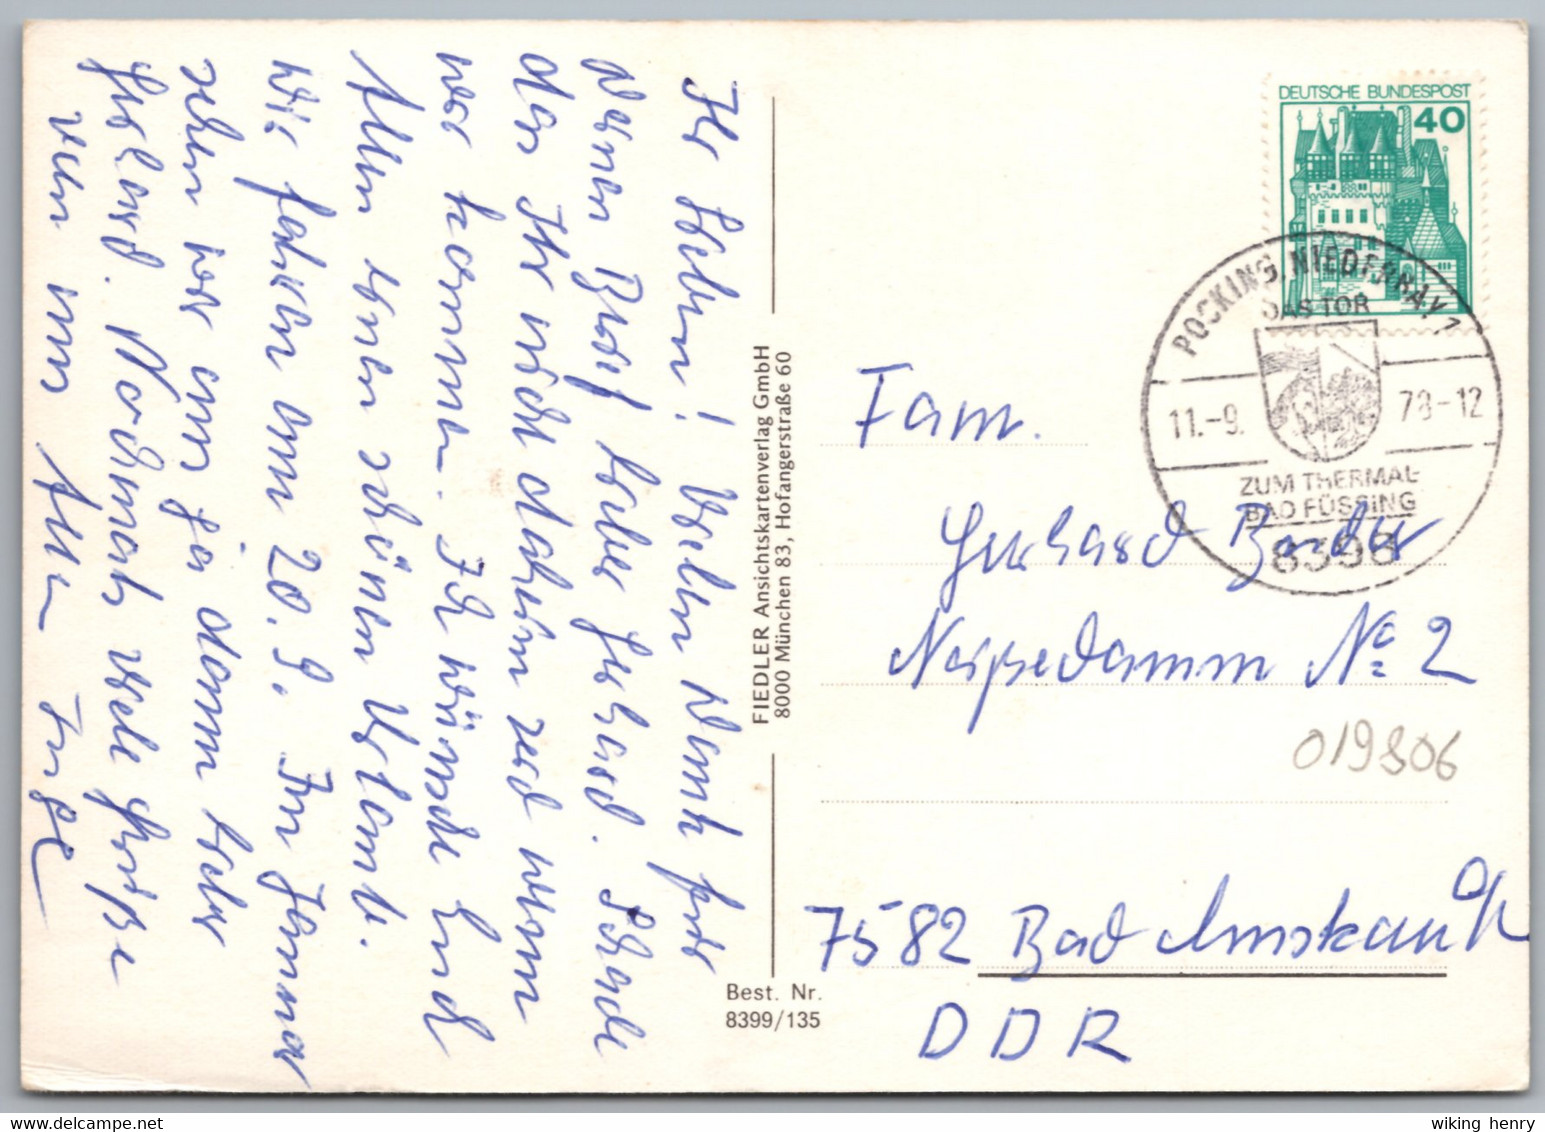 Ihr Lieben! Vielen Dank für
Deinen Brief lieber Gerhard. Schade
das Ihr nicht daheim seid wenn
wir kommen. Ich wünsche Euch
Allen einen schönen Urlaub.
Wir fahren am 20.9. Im Januar
sehen wir uns ja dann lieber
Gerhard. Nochmals viele Grüße
von uns Allen Inge
FIEDLER Ansichtskartenverlag GmbH
8000 München 83, Hofangerstraße 60
Best. Nr.
8399/135
DEUTSCHE BUNDESPOST
40
POCKING, NIEDERBAY 1
DAS TOR
11.-9. 78-12
ZUM THERMAL-
BAD FÜSSING
8398
Fam.
Gerhard
No 2
019806
7582 Bad
DDR
wiking henry